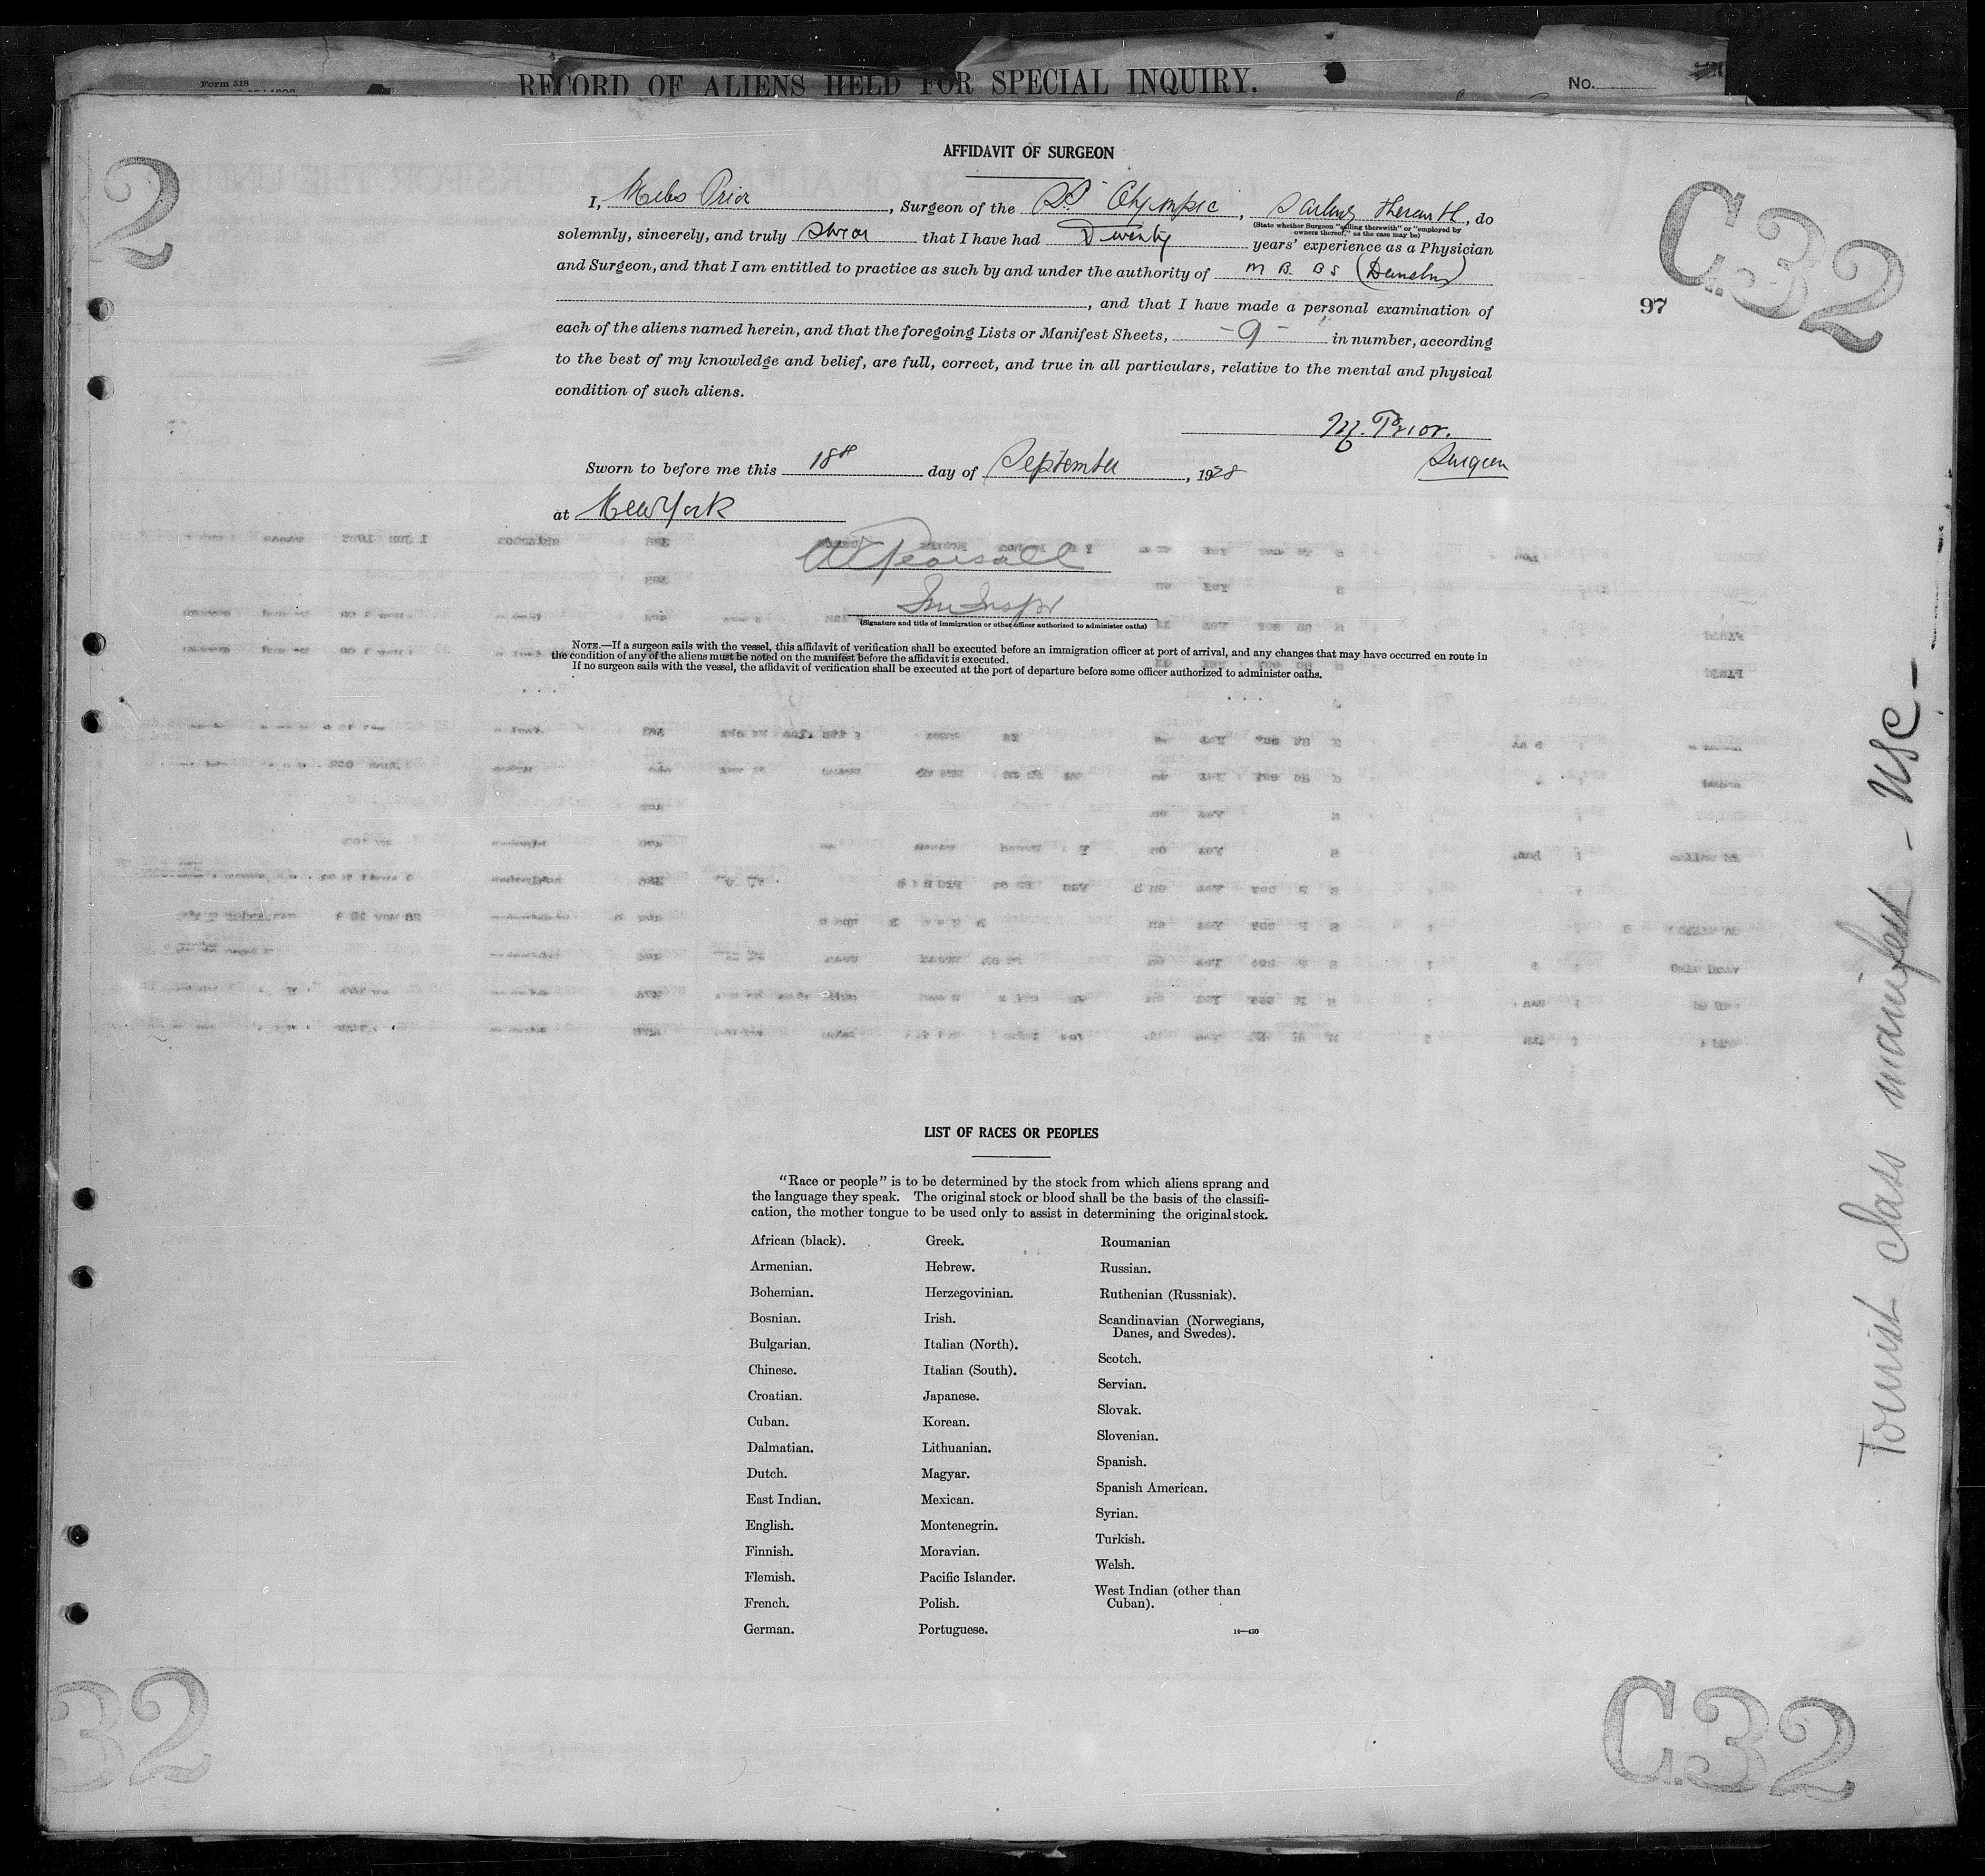 Form 518
RECORD OF ALIENS HELD FOR SPECIAL INQUIRY.
No.
2
C.32
97
AFFIDAVIT OF SURGEON
I, Miles Prior, Surgeon of the SS Olympic, Sailing Therewith, do
(State whether Surgeon "sailing therewith" or "employed by
owners thereof," as the case may be)
solemnly, sincerely, and truly swear that I have had Twenty years' experience as a Physician
and Surgeon, and that I am entitled to practice as such by and under the authority of M B. B S (Dunelm)
, and that I have made a personal examination of
each of the aliens named herein, and that the foregoing Lists or Manifest Sheets, - 9 - in number, according
to the best of my knowledge and belief, are full, correct, and true in all particulars, relative to the mental and physical
condition of such aliens.
M. Prior.
Surgeon
Sworn to before me this 18th day of September, 1928
at New York
Pearsall
Imm Inspr
(Signature and title of immigration or other officer authorized to administer oaths)
NOTE.—If a surgeon sails with the vessel, this affidavit of verification shall be executed before an immigration officer at port of arrival, and any changes that may have occurred en route in
the condition of any of the aliens must be noted on the manifest before the affidavit is executed.
If no surgeon sails with the vessel, the affidavit of verification shall be executed at the port of departure before some officer authorized to administer oaths.
Tourist class manifest - USC -
LIST OF RACES OR PEOPLES
"Race or people" is to be determined by the stock from which aliens sprang and
the language they speak. The original stock or blood shall be the basis of the classifi-
cation, the mother tongue to be used only to assist in determining the original stock.
African (black).
Armenian.
Bohemian.
Bosnian.
Bulgarian.
Chinese.
Croatian.
Cuban.
Dalmatian.
Dutch.
East Indian.
English.
Finnish.
Flemish.
French.
German.
Greek.
Hebrew.
Herzegovinian.
Irish.
Italian (North).
Italian (South).
Japanese.
Korean.
Lithuanian.
Magyar.
Mexican.
Montenegrin.
Moravian.
Pacific Islander.
Polish.
Portuguese.
Roumanian
Russian.
Ruthenian (Russniak).
Scandinavian (Norwegians,
Danes, and Swedes).
Scotch.
Servian.
Slovak.
Slovenian.
Spanish.
Spanish American.
Syrian.
Turkish.
Welsh.
West Indian (other than
Cuban).
14—430
32
C.32